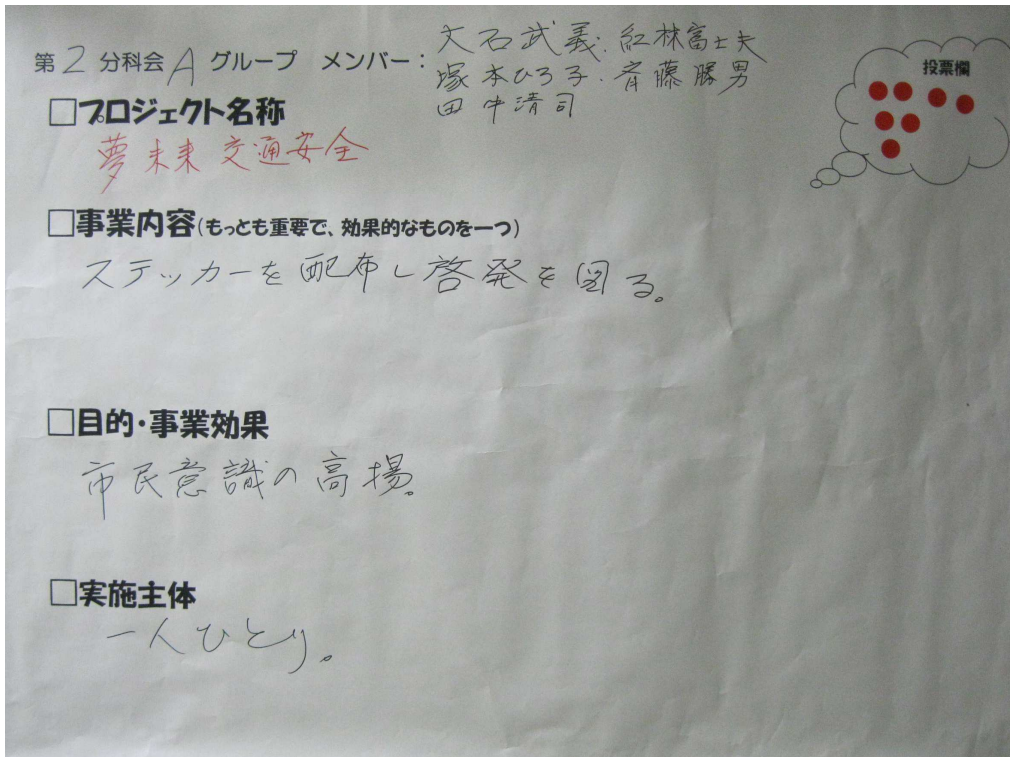 第2分科会Aグループ メンバー：大石武義．紅林富士夫
塚本ひろ子．斉藤勝男
田中清司
投票欄
□プロジェクト名称
夢未来交通安全
□事業内容(もっとも重要で、効果的なものを一つ)
ステッカーを配布し啓発を図る。
□目的・事業効果
市民意識の高揚。
□実施主体
一人ひとり。